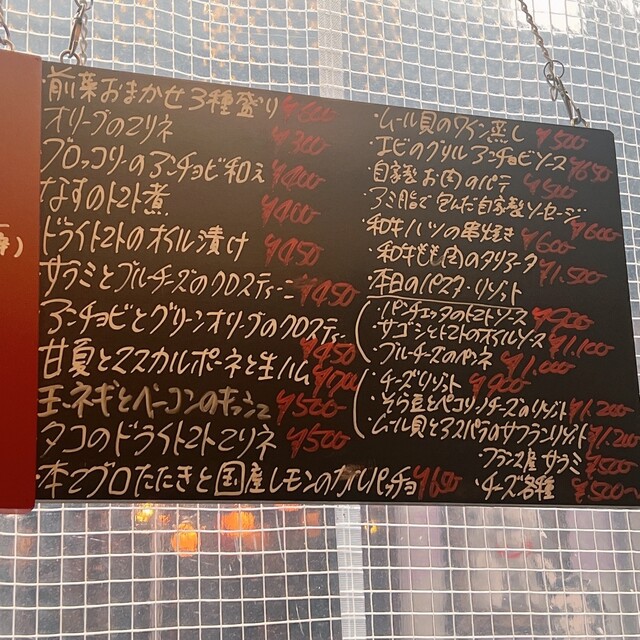 ・前菜おまかせ3種盛り ¥800
オリーブのマリネ ¥300
ブロッコリーのアンチョビ和え ¥400
なすのトマト煮 ¥400
ドライトマトのオイル漬け ¥450
・サラミとブルーチーズのクロスティーニ ¥450
・アンチョビとグリーンオリーブのクロスティーニ ¥450
甘夏とマスカルポーネと生ハム ¥700
玉ネギとベーコンのキッシュ ¥500
タコのドライトマトマリネ ¥500
・本マグロたたきと国産レモンのカルパッチョ ¥600
・ムール貝のワイン蒸し ¥500
・エビのグリル アンチョビソース ¥650
自家製お肉のパテ ¥500
・アミ脂で包んだ自家製ソーセージ ¥600
・和牛ハツの串焼き ¥600
・和牛もも肉のタリアータ ¥1.500
・本日のパスタ・リゾット
・パンチェッタのトマトソース ¥900
・サゴシとトマトのオイルソース ¥1.100
・ブルーチーズのペンネ ¥1.000
・チーズリゾット ¥900
・そら豆とペコリーノチーズのリゾット ¥1.200
・ムール貝とアスパラのサフランリゾット ¥1.200
フランス産サラミ ¥500
・チーズ各種 ¥500〜